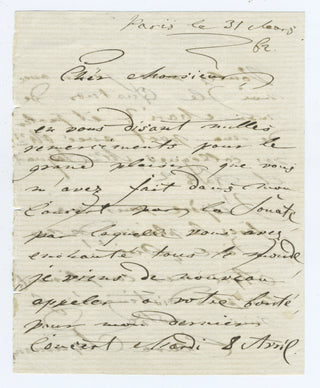 Paris le 31 Mars
62.
Chèr Monsieur
en vous disant milles
remerciments pour le
grand plaisir que vous
m avez fait dans mon
Concert par la Sonate
par laquelle vous avez
enchanté tous le monde,
je viens de nouveau
appeler à votre bonté,
pour mon dernier
Concert Mardi 8 Avril.